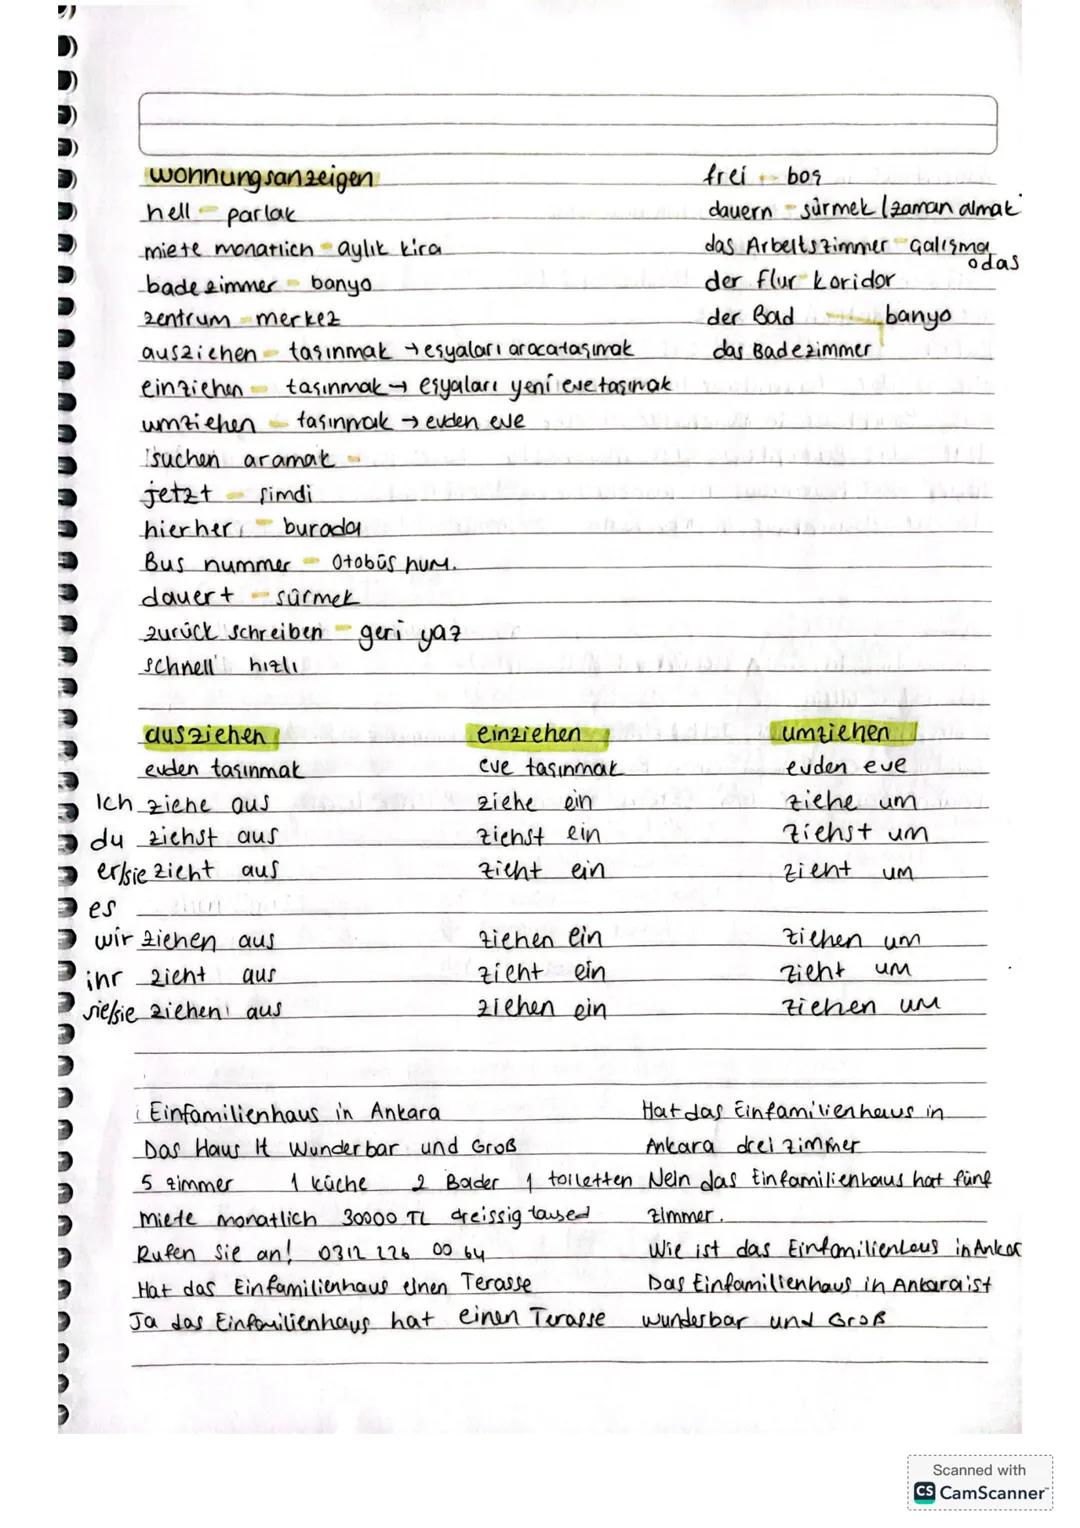 wohnungsanzeigen
hell - parlak
miete monatlich - aylık kira
badezimmer - banyo
zentrum - merkez
ausziehen - taşınmak → eşyaları araca taşımak
einziehen - taşınmak → eşyaları yeni eve taşımak
umziehen - taşınmak → evden eve
suchen aramak -
jetzt - şimdi
hierher - burada
Bus nummer - otobüs num.
dauert - sürmek
zurück schreiben - geri yaz
schnell hızlı
frei - boş
dauern - sürmek (zaman almak
das Arbeitszimmer - Çalışma
odas
der flur - koridor
der Bad - banyo
das Badezimmer
ausziehen einziehen umziehen
evden taşınmak eve taşınmak evden eve
Ich ziehe aus ziehe ein ziehe um
du ziehst aus ziehst ein ziehst um
er/sie zieht aus zieht ein zieht um
es
wir ziehen aus ziehen ein ziehen um
ihr zieht aus zieht ein zieht um
sie/sie ziehen aus ziehen ein ziehen um
Einfamilienhaus in Ankara
Das Haus It Wunderbar und Groß
5 zimmer 1 küche 2 Bader 1 toiletten
Miete monatlich 30000 TL dreissig taused
Rufen Sie an! 0312 226 00 64
Hat das Einfamilienhaus einen Terasse
Ja das Einfamilienhaus hat einen Terasse
Hat das Einfamilienhaus in
Ankara drei zimmer
Nein das Einfamilienhaus hat fünf
zimmer.
Wie ist das Einfamilienhaus in Ankar
Das Einfamilienhaus in Ankara ist
wunderbar und Groß
Scanned with
CS CamScanner